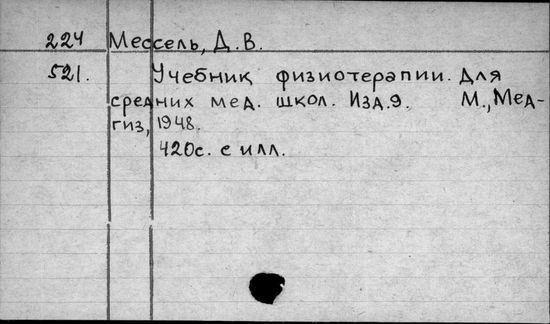 224 Мессель, Д. В.
521. Учебник физиотерапии. Для
средних мед. школ. Изд. 9. М., Мед-
гиз, 1948.
420с. с илл.